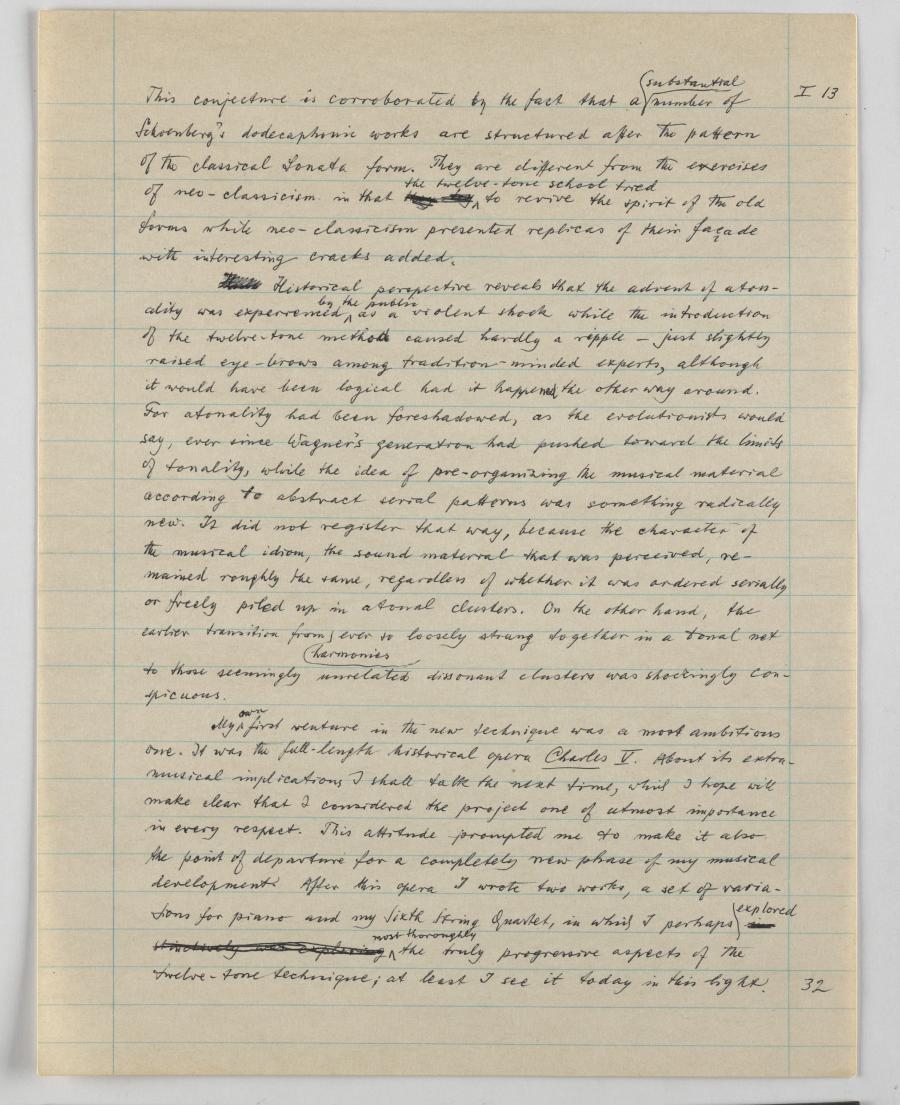 substantial
This conjecture is corroborated by the fact that a number of
I 13
Schoenberg's dodecaphonic works are structured after the pattern
of the classical Sonata form. They are different from the exercises
the twelve-tone school tried
of neo-classicism in that they try to revive the spirit of the old
forms while neo-classicism presented replicas of their façade
with interesting cracks added.
Historical perspective reveals that the advent of aton-
by the public
ality was experienced as a violent shock while the introduction
of the twelve-tone method caused hardly a ripple – just slightly
raised eye-brows among tradition-minded experts, although
it would have been logical had it happened the other way around.
For atonality had been foreshadowed, as the evolutionists would
say, ever since Wagner's generation had pushed toward the limits
of tonality, while the idea of pre-organizing the musical material
according to abstract serial patterns was something radically
new. It did not register that way, because the character of
the musical idiom, the sound material that was perceived, re-
mained roughly the same, regardless of whether it was ordered serially
or freely piled up in atonal clusters. On the other hand, the
earlier transition from ever so loosely strung together in a tonal net
harmonies
to those seemingly unrelated dissonant clusters was shockingly con-
spicuous.
own
My first venture in the new technique was a most ambitious
one. It was the full-length historical opera Charles V. About its extra-
musical implications I shall talk the next time, which I hope will
make clear that I considered the project one of utmost importance
in every respect. This attitude prompted me to make it also
the point of departure for a completely new phase of my musical
development. After this opera I wrote two works, a set of varia-
explored
tions for piano and my Sixth String Quartet, in which I perhaps in
most thoroughly
stinctively was exploring the truly progressive aspects of the
twelve-tone technique; at least I see it today in this light.
32